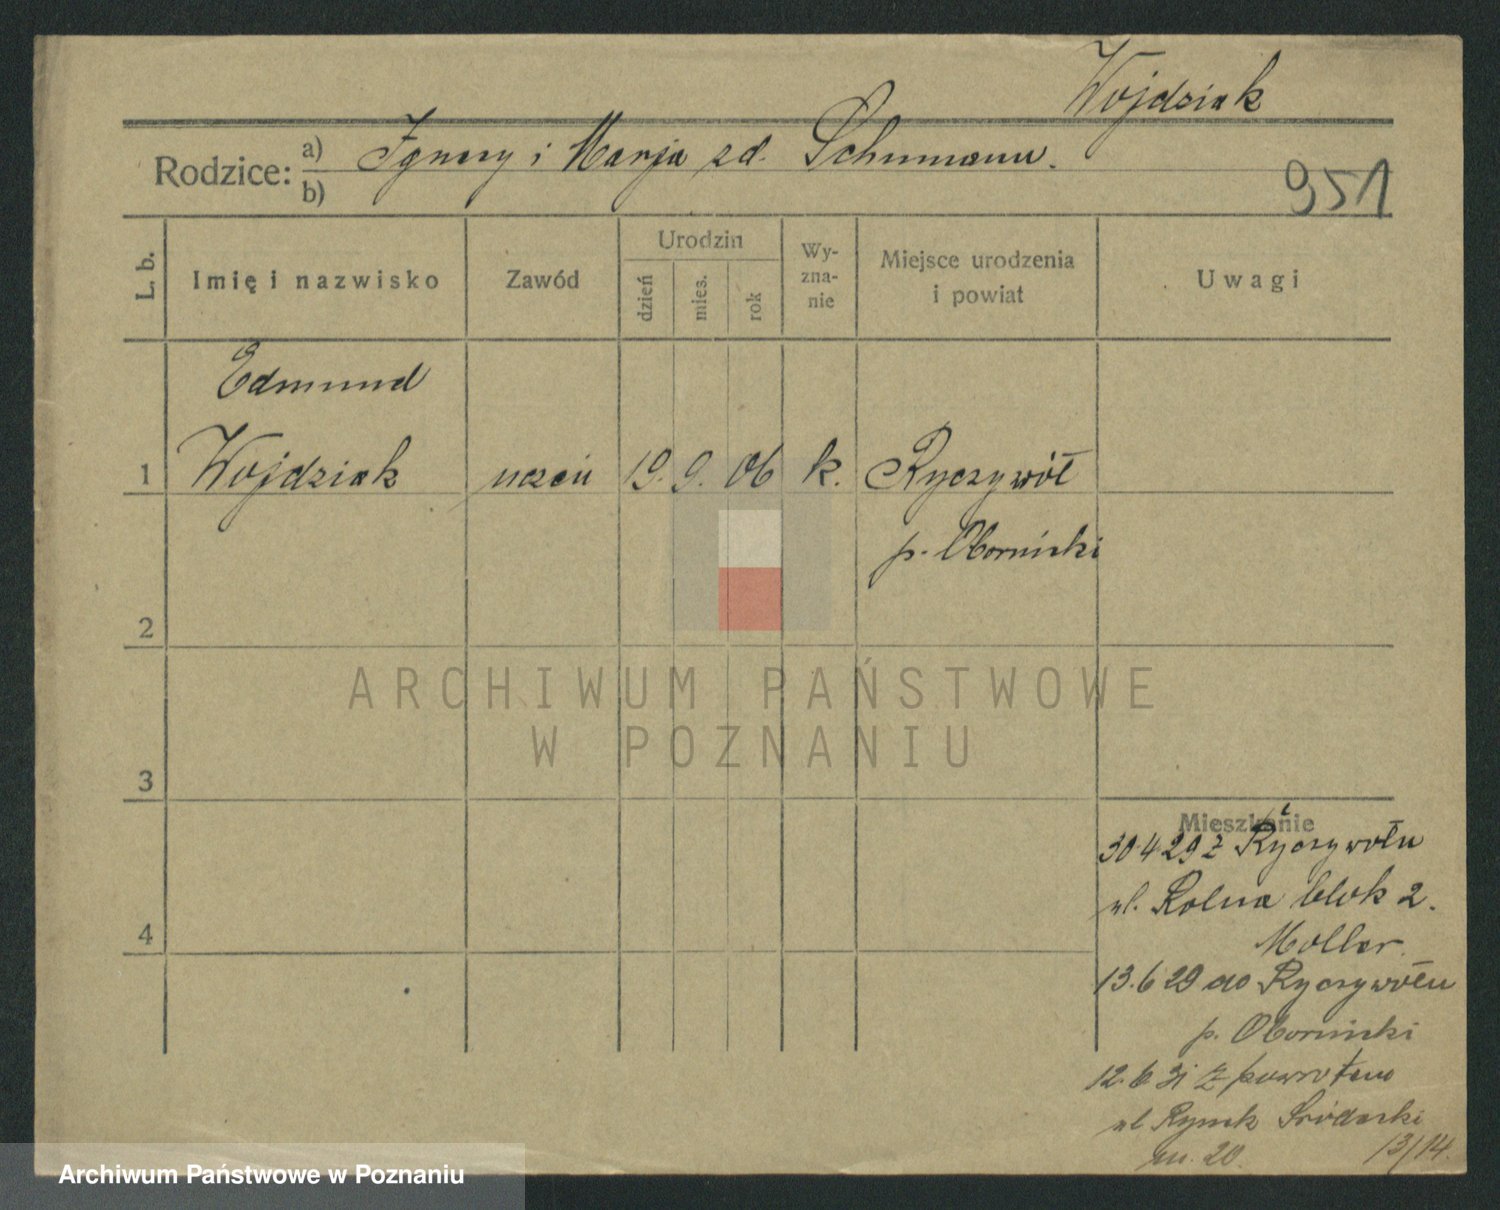 Wojdziak
Rodzice: a) Ignacy i Marja zd. Schumann.
b)
951
L. b.
Imię i nazwisko
Zawód
Urodzin
dzień
mies.
rok
Wy-
zna-
nie
Miejsce urodzenia
i powiat
Uwagi
Edmund
1 Wojdziak uczeń 19. 9. 06 k. Ryczywół
p. Obornicki
2
3
4
Mieszkanie
30 4 29 z Ryczywołu
ul. Rolna blok 2.
Moller.
13. 6 29 do Ryczywołu
p. Obornicki
12. 6 31 z powrotem
ul Rynek Śródecki
m. 20.
13/14.
ARCHIWUM PAŃSTWOWE
W POZNANIU
Archiwum Państwowe w Poznaniu